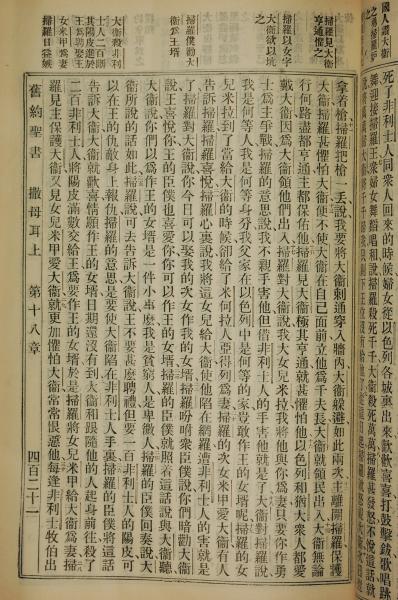 國人讚大衛
掃羅見大衛
亨通懼之
掃羅以女字
大衛欲以坑
之
掃羅僕勸大
衛爲王壻
大衛殺非利
士人二百割
其陽皮進於
王爲聘娶王
女米甲爲妻
掃羅日益嫉
死了非利士人同衆人回來的時候婦女從以色列各城裏出來歡歡喜喜打鼓擊鈸歌唱跳
舞迎接掃羅王衆婦女舞蹈唱和說掃羅殺死千千大衛殺死萬萬掃羅甚發怒不悅這話就
拿着槍掃羅把槍一丟說我要將大衛刺通穿入牆內大衛躲避如此兩次主離開掃羅保護
大衛掃羅甚懼怕大衛便不使大衛在自己面前立他爲千夫長大衛就領民出入大衛無論
行何路盡都亨通主都保佑他掃羅見大衛極其亨通就甚懼怕他以色列和猶大衆人都愛
戴大衛因爲大衛領他們出入掃羅對大衛說我大女兒米拉我將他與你爲妻只要你作勇
士爲主爭戰掃羅的意思說我不親手害他但借非利士人的手害他就是了大衛對掃羅說
我是何等人我是何等身分我父家在以色列中是何等的家豈敢作王的女壻呢掃羅的女
兒米拉到了當給大衛的時候卻給了米何拉人亞得列爲妻掃羅的次女米甲愛大衛有人
告訴掃羅掃羅喜悅掃羅心裏說我將這女兒給大衛使他陷在網羅遭非利士人的害就是
了掃羅對大衛說你今日可以娶我的次女作我的女壻掃羅吩咐衆臣僕說你們暗勸大衛
說王喜悅你王的臣僕也喜愛你你可以作王的女壻掃羅的臣僕就照着這話說與大衛聽
大衛說你們以爲作王的女壻是一件小事麼我是貧窮人是卑微人掃羅的臣僕回奏說大
衛所說的話如此掃羅說可去告訴大衛說王不要甚麼聘禮但要一百非利士人的陽皮可
以在王的仇敵身上報仇掃羅的意思是要使大衛陷在非利士人手裏掃羅的臣僕將這話
告訴大衛大衛就歡喜情願作王的女壻日期還沒有到大衛和跟隨他的人起身前往殺了
二百非利士人將陽皮滿數交給王爲要作王的女壻於是掃羅將女兒米甲給大衛爲妻掃
羅見主保護大衛又見女兒米甲愛大衛就更加懼怕大衛常常恨惡他每逢非利士牧伯出
舊約聖書 撒母耳上 第十八章 四百二十一